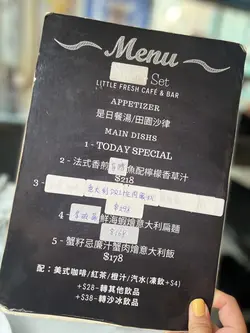 Menu
Set
LITTLE FRESH CAFÉ & BAR
APPETIZER
是日餐湯/田園沙律
MAIN DISHS
1 - TODAY SPECIAL
2 - 法式香煎魚配檸檬香草汁
$218
3 -
4 - 鮮海蝦燴意大利扁麵
5 - 蟹籽忌廉汁蟹肉燴意大利飯
$178
配：美式咖啡/紅茶/橙汁/汽水(凍飲+$4)
+$28-轉其他飲品
+$38-轉沙冰飲品